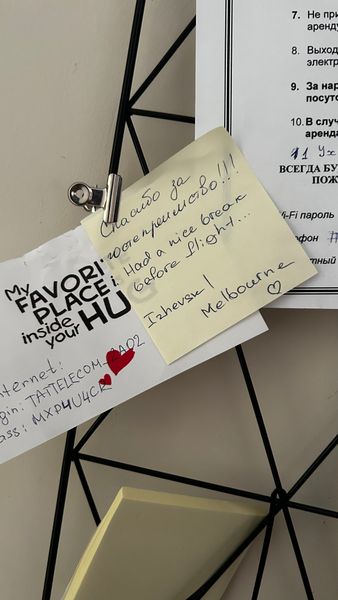 7. Не при
аренду
8. Выход
электр
9. За нар
посуто
10. В случ
аренда
11 Ух
ВСЕГДА БУ
ПОЖ
-Fi пароль
фон
тный
Спасибо за
гостеприимство!!!
Had a nice break
before flight...
Izhevsk |
Melbourne ♡
MY
FAVORI
PLACE i
inside
your HU
nternet:
gin: TATTELECOM_
ass: